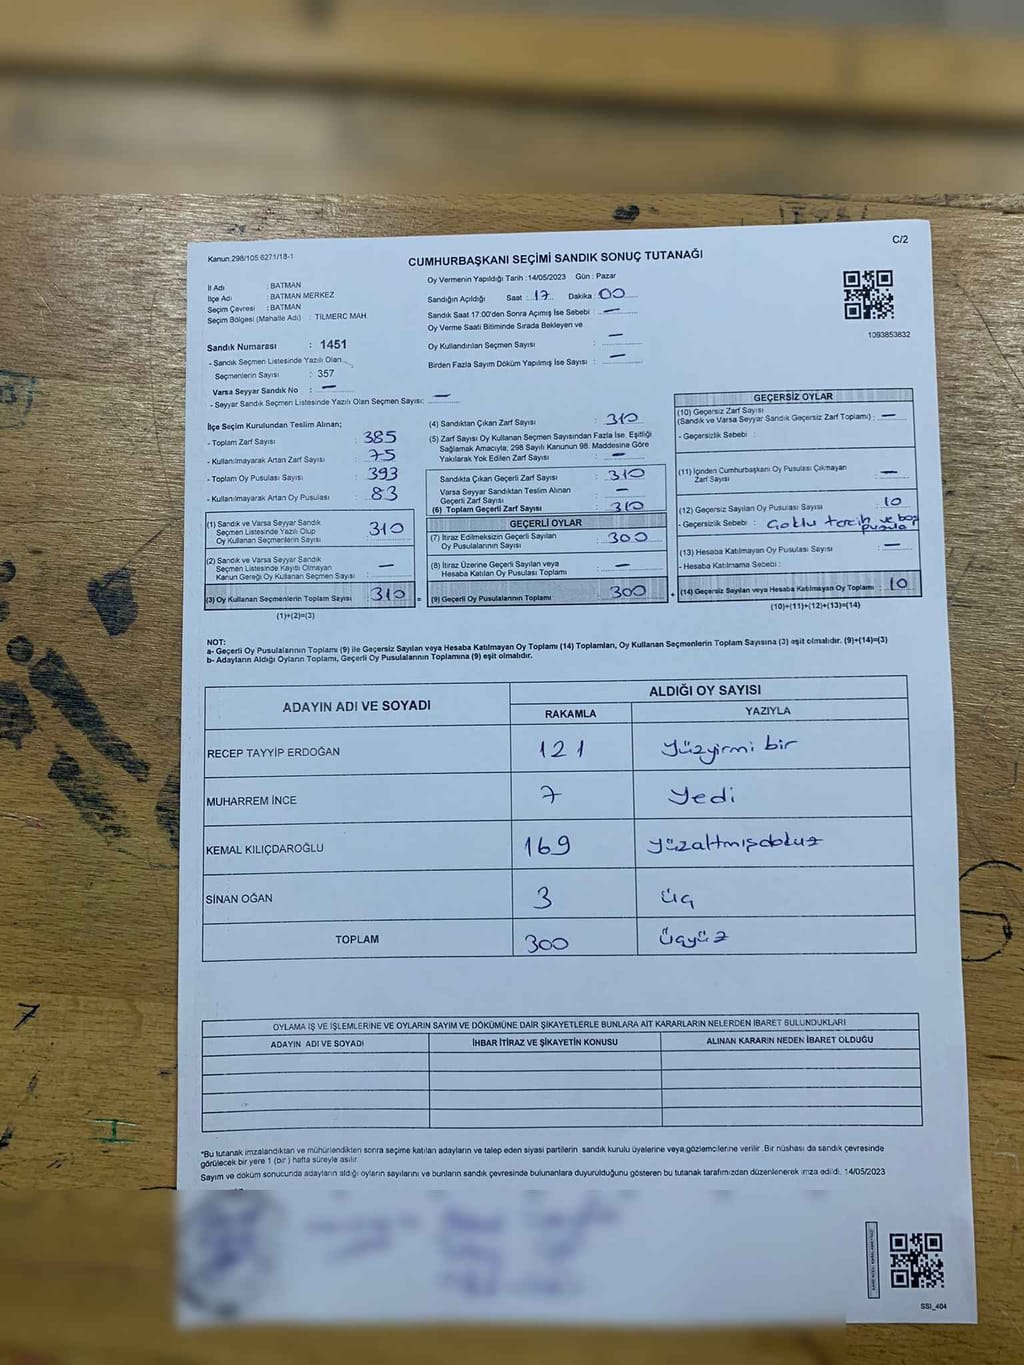 Kanun:298/105 6271/18-1
C/2
CUMHURBAŞKANI SEÇİMİ SANDIK SONUÇ TUTANAĞI
İl Adı : BATMAN
İlçe Adı : BATMAN MERKEZ
Seçim Çevresi : BATMAN
Seçim Bölgesi (Mahalle Adı) : TİLMERC MAH.
Sandık Numarası : 1451
- Sandık Seçmen Listesinde Yazılı Olan
Seçmenlerin Sayısı : 357
Varsa Seyyar Sandık No : —
- Seyyar Sandık Seçmen Listesinde Yazılı Olan Seçmen Sayısı: —
Oy Vermenin Yapıldığı Tarih :14/05/2023 Gün : Pazar
Sandığın Açıldığı Saat : 17 Dakika : 00
Sandık Saat 17:00'den Sonra Açımış İse Sebebi : —
Oy Verme Saati Bitiminde Sırada Bekleyen ve
Oy Kullandırılan Seçmen Sayısı : —
Birden Fazla Sayım Döküm Yapılmış İse Sayısı : —
1093853832
İlçe Seçim Kurulundan Teslim Alınan;
- Toplam Zarf Sayısı : 385
- Kullanılmayarak Artan Zarf Sayısı : 75
- Toplam Oy Pusulası Sayısı : 393
- Kullanılmayarak Artan Oy Pusulası : 83
(1) Sandık ve Varsa Seyyar Sandık
Seçmen Listesinde Yazılı Olup
Oy Kullanan Seçmenlerin Sayısı : 310
(2) Sandık ve Varsa Seyyar Sandık
Seçmen Listesinde Kayıtlı Olmayan
Kanun Gereği Oy Kullanan Seçmen Sayısı : —
(3) Oy Kullanan Seçmenlerin Toplam Sayısı : 310 =
(1)+(2)=(3)
(4) Sandıktan Çıkan Zarf Sayısı : 310
(5) Zarf Sayısı Oy Kullanan Seçmen Sayısından Fazla İse, Eşitliği
Sağlamak Amacıyla; 298 Sayılı Kanunun 98. Maddesine Göre
Yakılarak Yok Edilen Zarf Sayısı : —
Sandıkta Çıkan Geçerli Zarf Sayısı : 310
Varsa Seyyar Sandıktan Teslim Alınan
Geçerli Zarf Sayısı : —
(6) Toplam Geçerli Zarf Sayısı : 310
GEÇERLİ OYLAR
(7) İtiraz Edilmeksizin Geçerli Sayılan
Oy Pusulalarının Sayısı : 300
(8) İtiraz Üzerine Geçerli Sayılan veya
Hesaba Katılan Oy Pusulası Toplamı : —
(9) Geçerli Oy Pusulalarının Toplamı : 300 +
GEÇERSİZ OYLAR
(10) Geçersiz Zarf Sayısı
(Sandık ve Varsa Seyyar Sandık Geçersiz Zarf Toplamı) : —
- Geçersizlik Sebebi :
(11) İçinden Cumhurbaşkanı Oy Pusulası Çıkmayan
Zarf Sayısı : —
(12) Geçersiz Sayılan Oy Pusulası Sayısı : 10
- Geçersizlik Sebebi : Çoklu tercih ve boş
pusula
(13) Hesaba Katılmayan Oy Pusulası Sayısı : —
- Hesaba Katılmama Sebebi :
(14) Geçersiz Sayılan veya Hesaba Katılmayan Oy Toplamı : 10
(10)+(11)+(12)+(13)=(14)
NOT:
a- Geçerli Oy Pusulalarının Toplamı (9) ile Geçersiz Sayılan veya Hesaba Katılmayan Oy Toplamı (14) Toplamları, Oy Kullanan Seçmenlerin Toplam Sayısına (3) eşit olmalıdır. (9)+(14)=(3)
b- Adayların Aldığı Oyların Toplamı, Geçerli Oy Pusulalarının Toplamına (9) eşit olmalıdır.
ADAYIN ADI VE SOYADI
ALDIĞI OY SAYISI
RAKAMLA YAZIYLA
RECEP TAYYİP ERDOĞAN 121 Yüzyirmi bir
MUHARREM İNCE 7 Yedi
KEMAL KILIÇDAROĞLU 169 Yüzaltmışdokuz
SİNAN OĞAN 3 üç
TOPLAM 300 üçyüz
OYLAMA İŞ VE İŞLEMLERİNE VE OYLARIN SAYIM VE DÖKÜMÜNE DAİR ŞİKAYETLERLE BUNLARA AİT KARARLARIN NELERDEN İBARET BULUNDUKLARI
ADAYIN ADI VE SOYADI İHBAR İTİRAZ VE ŞİKAYETİN KONUSU ALINAN KARARIN NEDEN İBARET OLDUĞU
*Bu tutanak imzalandıktan ve mühürlendikten sonra seçime katılan adayların ve talep eden siyasi partilerin sandık kurulu üyelerine veya gözlemcilerine verilir .Bir nüshası da sandık çevresinde
görülecek bir yere 1 (bir ) hafta süreyle asılır.
Sayım ve döküm sonucunda adayların aldığı oyların sayılarını ve bunların sandık çevresinde bulunanlara duyurulduğunu gösteren bu tutanak tarafımızdan düzenlenerek imza edildi. 14/05/2023
SSI_404